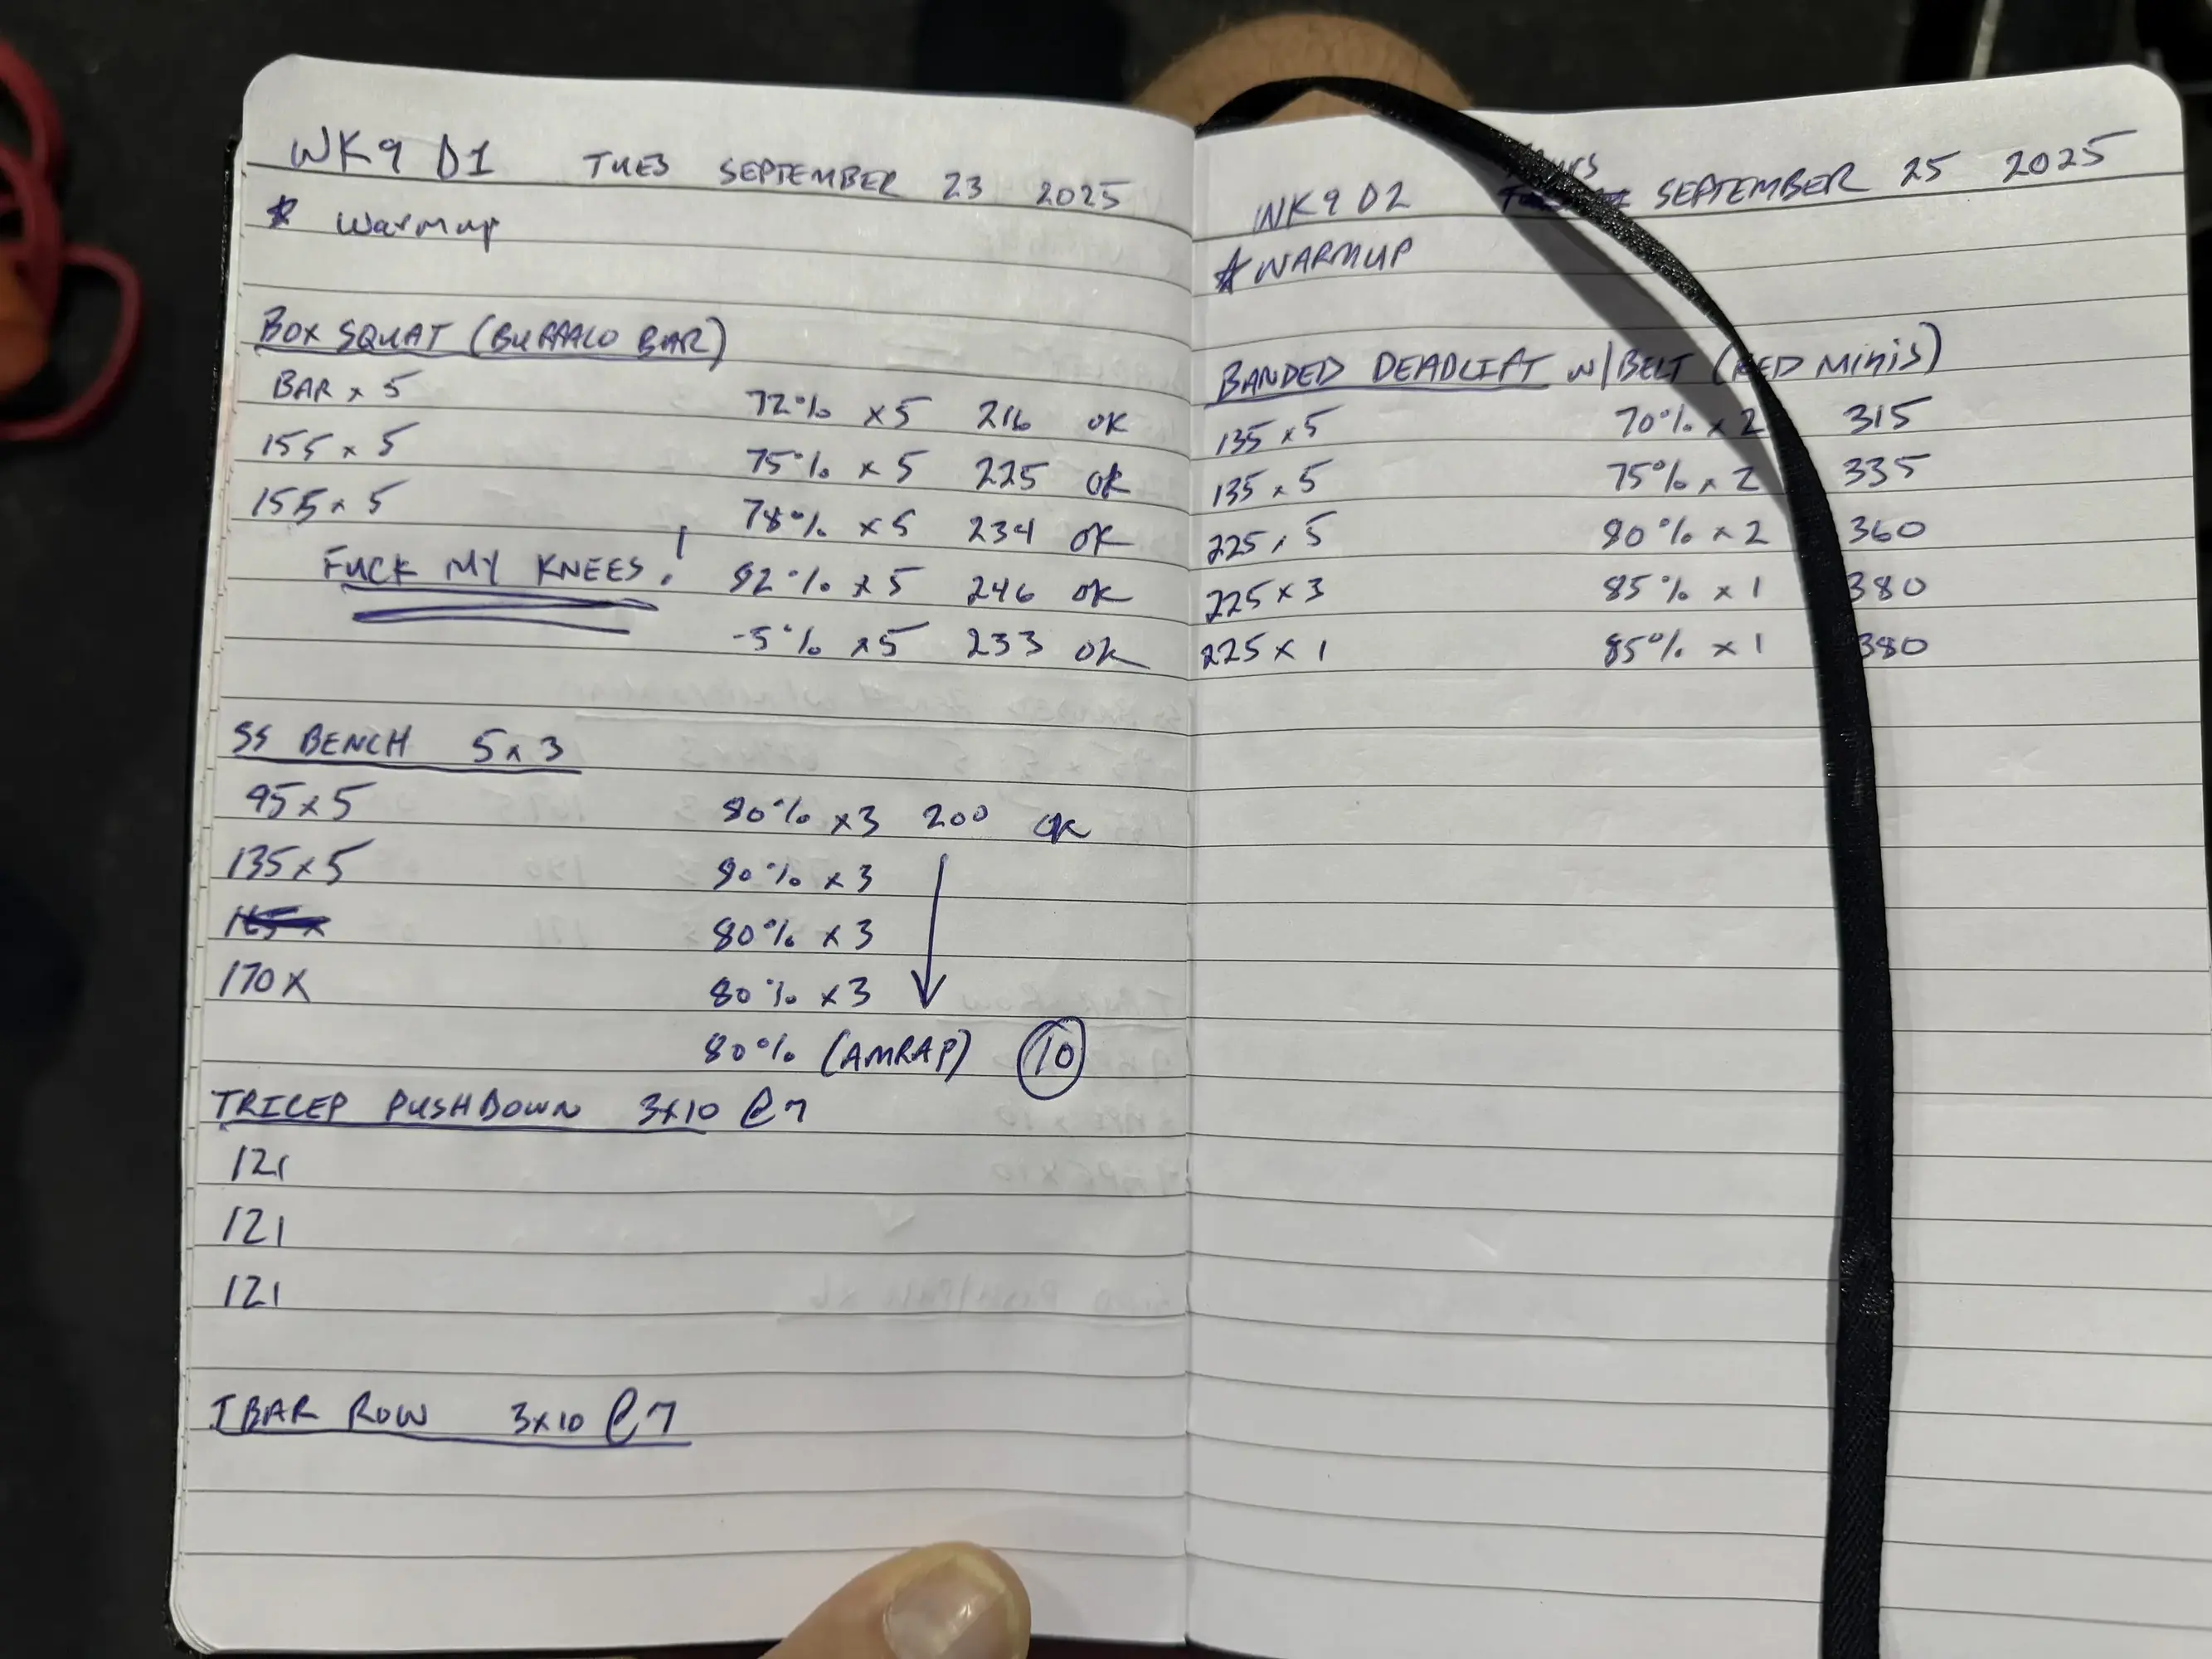 WK9 D1 TUES SEPTEMBER 23 2025
* Warmup
BOX SQUAT (BUFFALO BAR)
BAR x 5 72% x5 216 OK
155 x 5 75% x 5 225 OK
155 x 5 78% x5 234 OK
FUCK MY KNEES! 82% x 5 246 OK
-5% x5 233 OK
SS BENCH 5x3
95x5 80% x3 200 OK
135x5 80% x3
80% x3
170x 80% x3
80% (AMRAP) 10
TRICEP PUSHDOWN 3x10 @7
121
121
121
TBAR ROW 3x10 @7
WK9 D2 THURS SEPTEMBER 25 2025
* WARMUP
BANDED DEADLIFT W/BELT (RED MINIS)
135 x 5 70% x 2 315
135 x 5 75% x 2 335
225 x 5 80% x 2 360
225 x 3 85% x 1 380
225 x 1 85% x 1 380